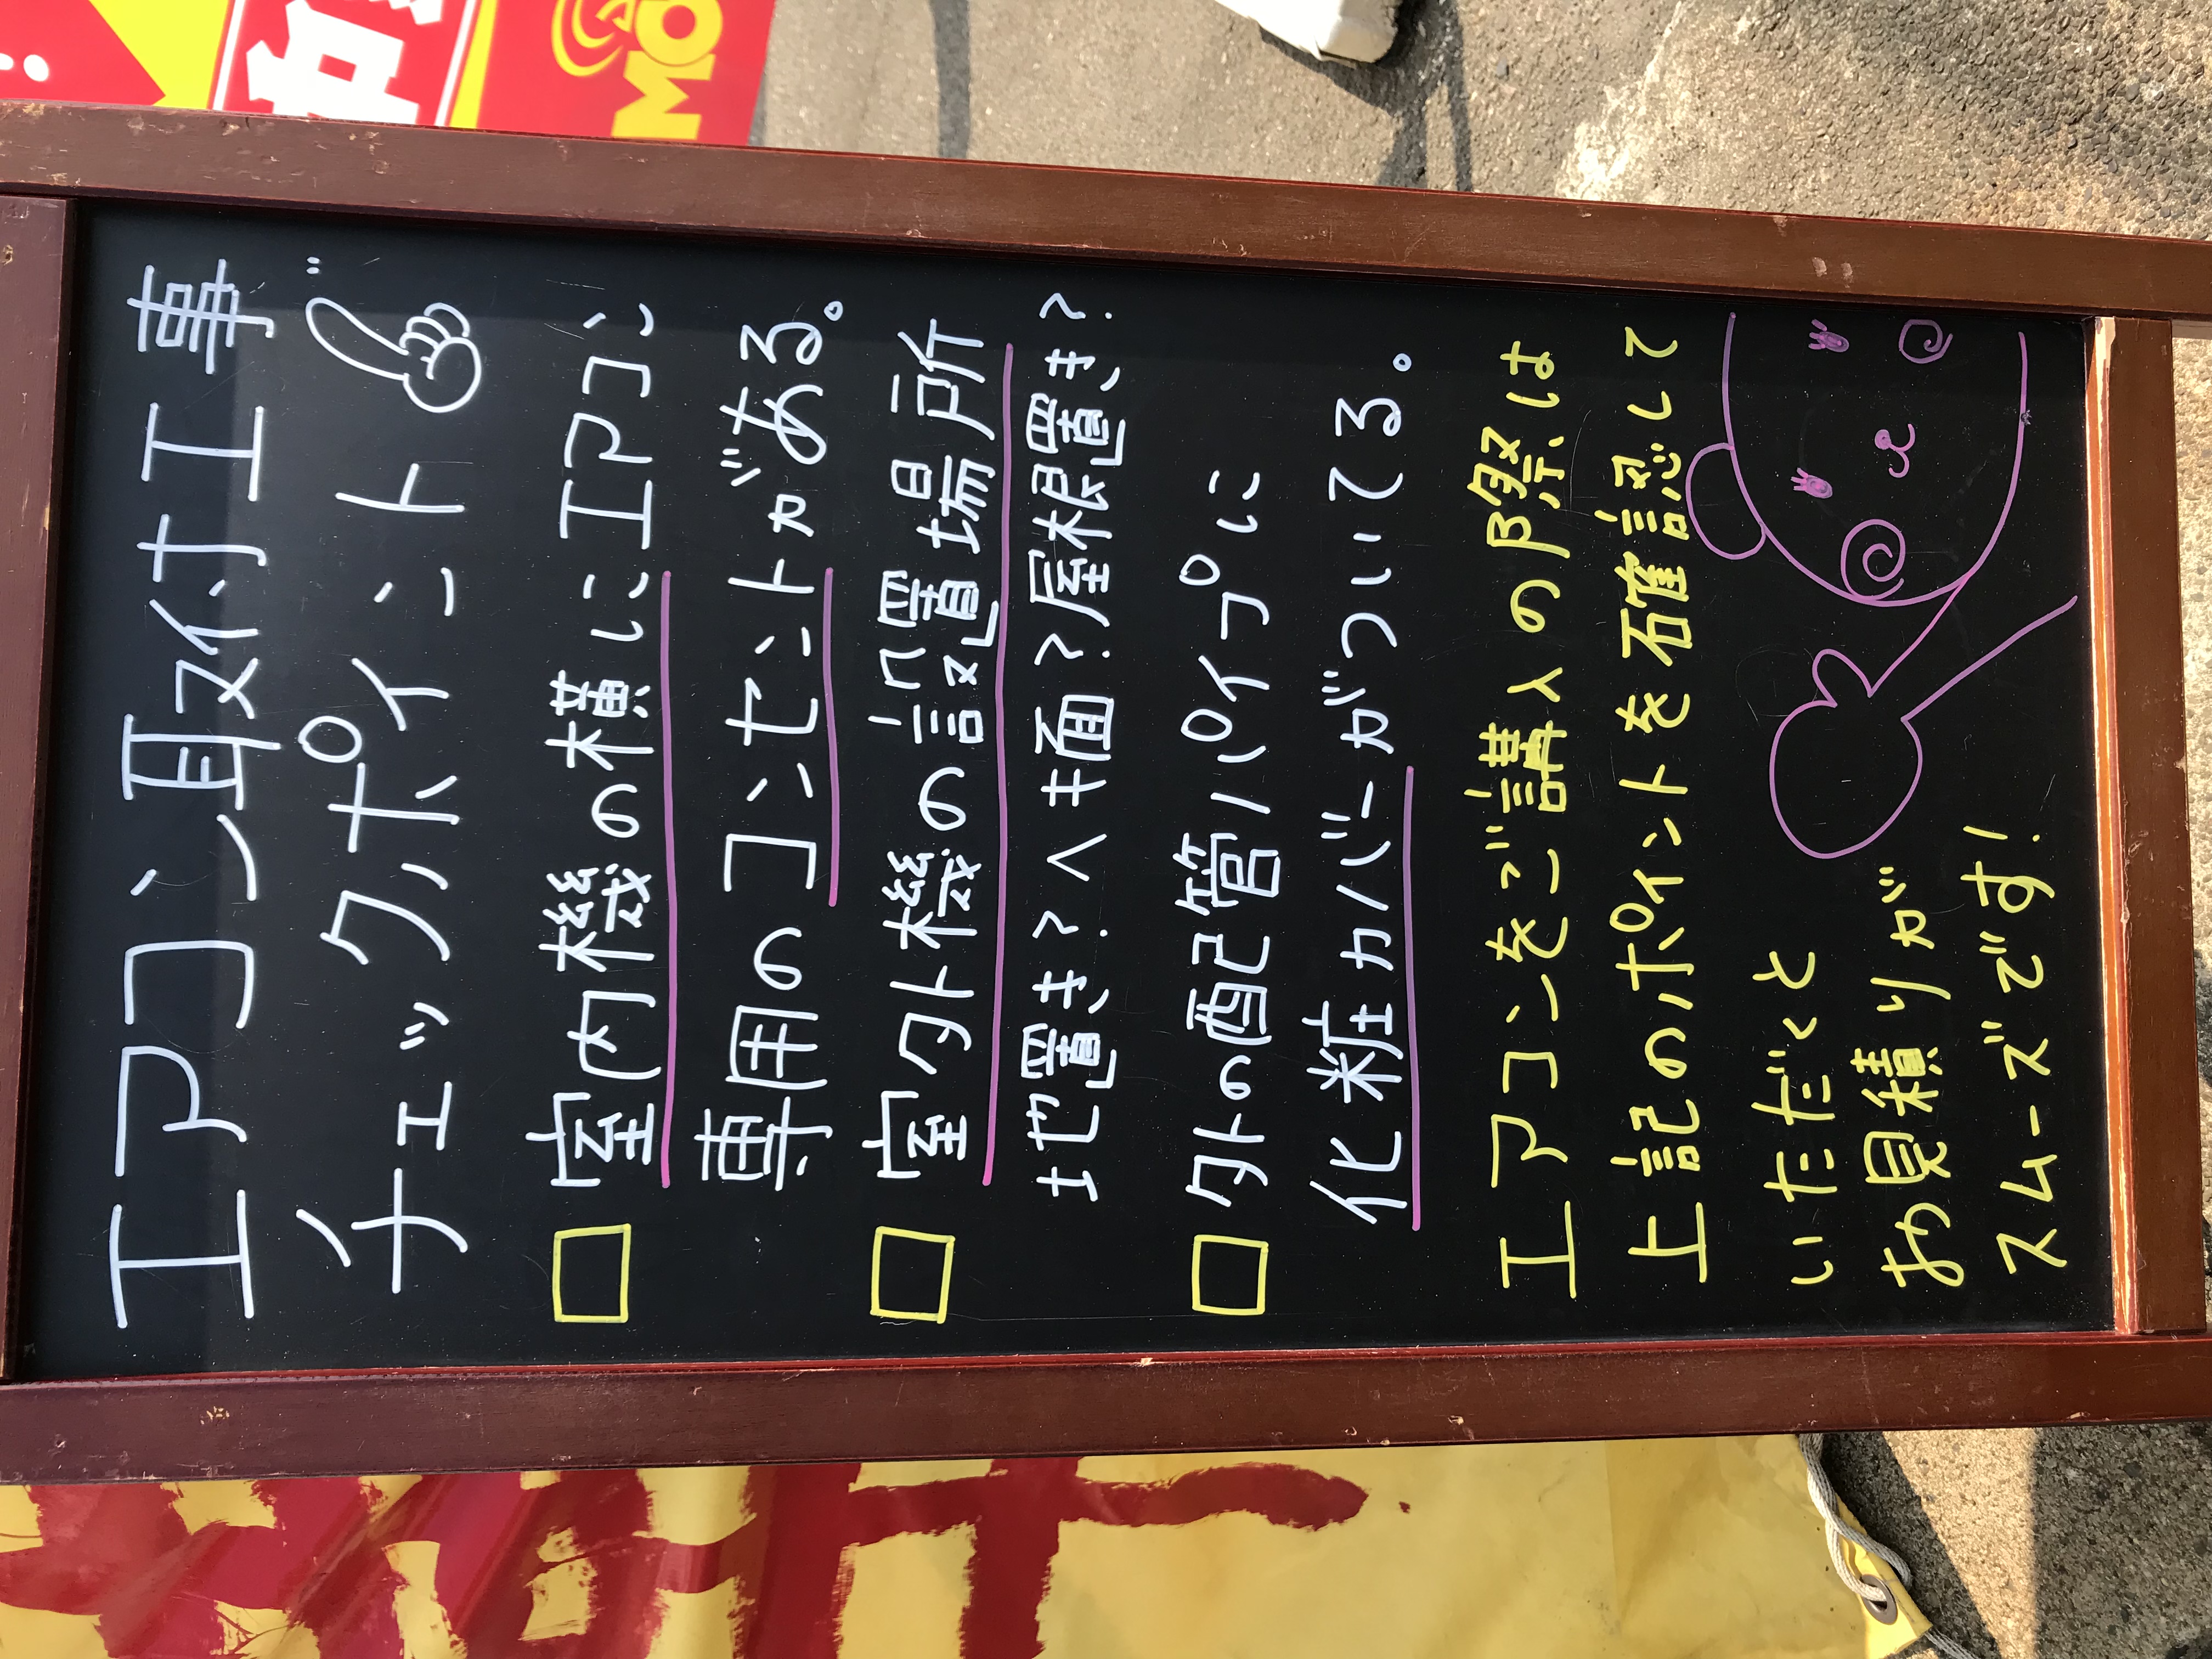 エアコン取付工事
チェックポイント
室内機の横にエアコン
専用のコンセントがある。
室外機の設置場所
地置き?ベキ面?屋根置き?
外の配管パイプに
化粧カバーがついてる。
エアコンをご講入の際は
上記のポイントを確認して
いただくと
お見積りが
スムーズです!
MO